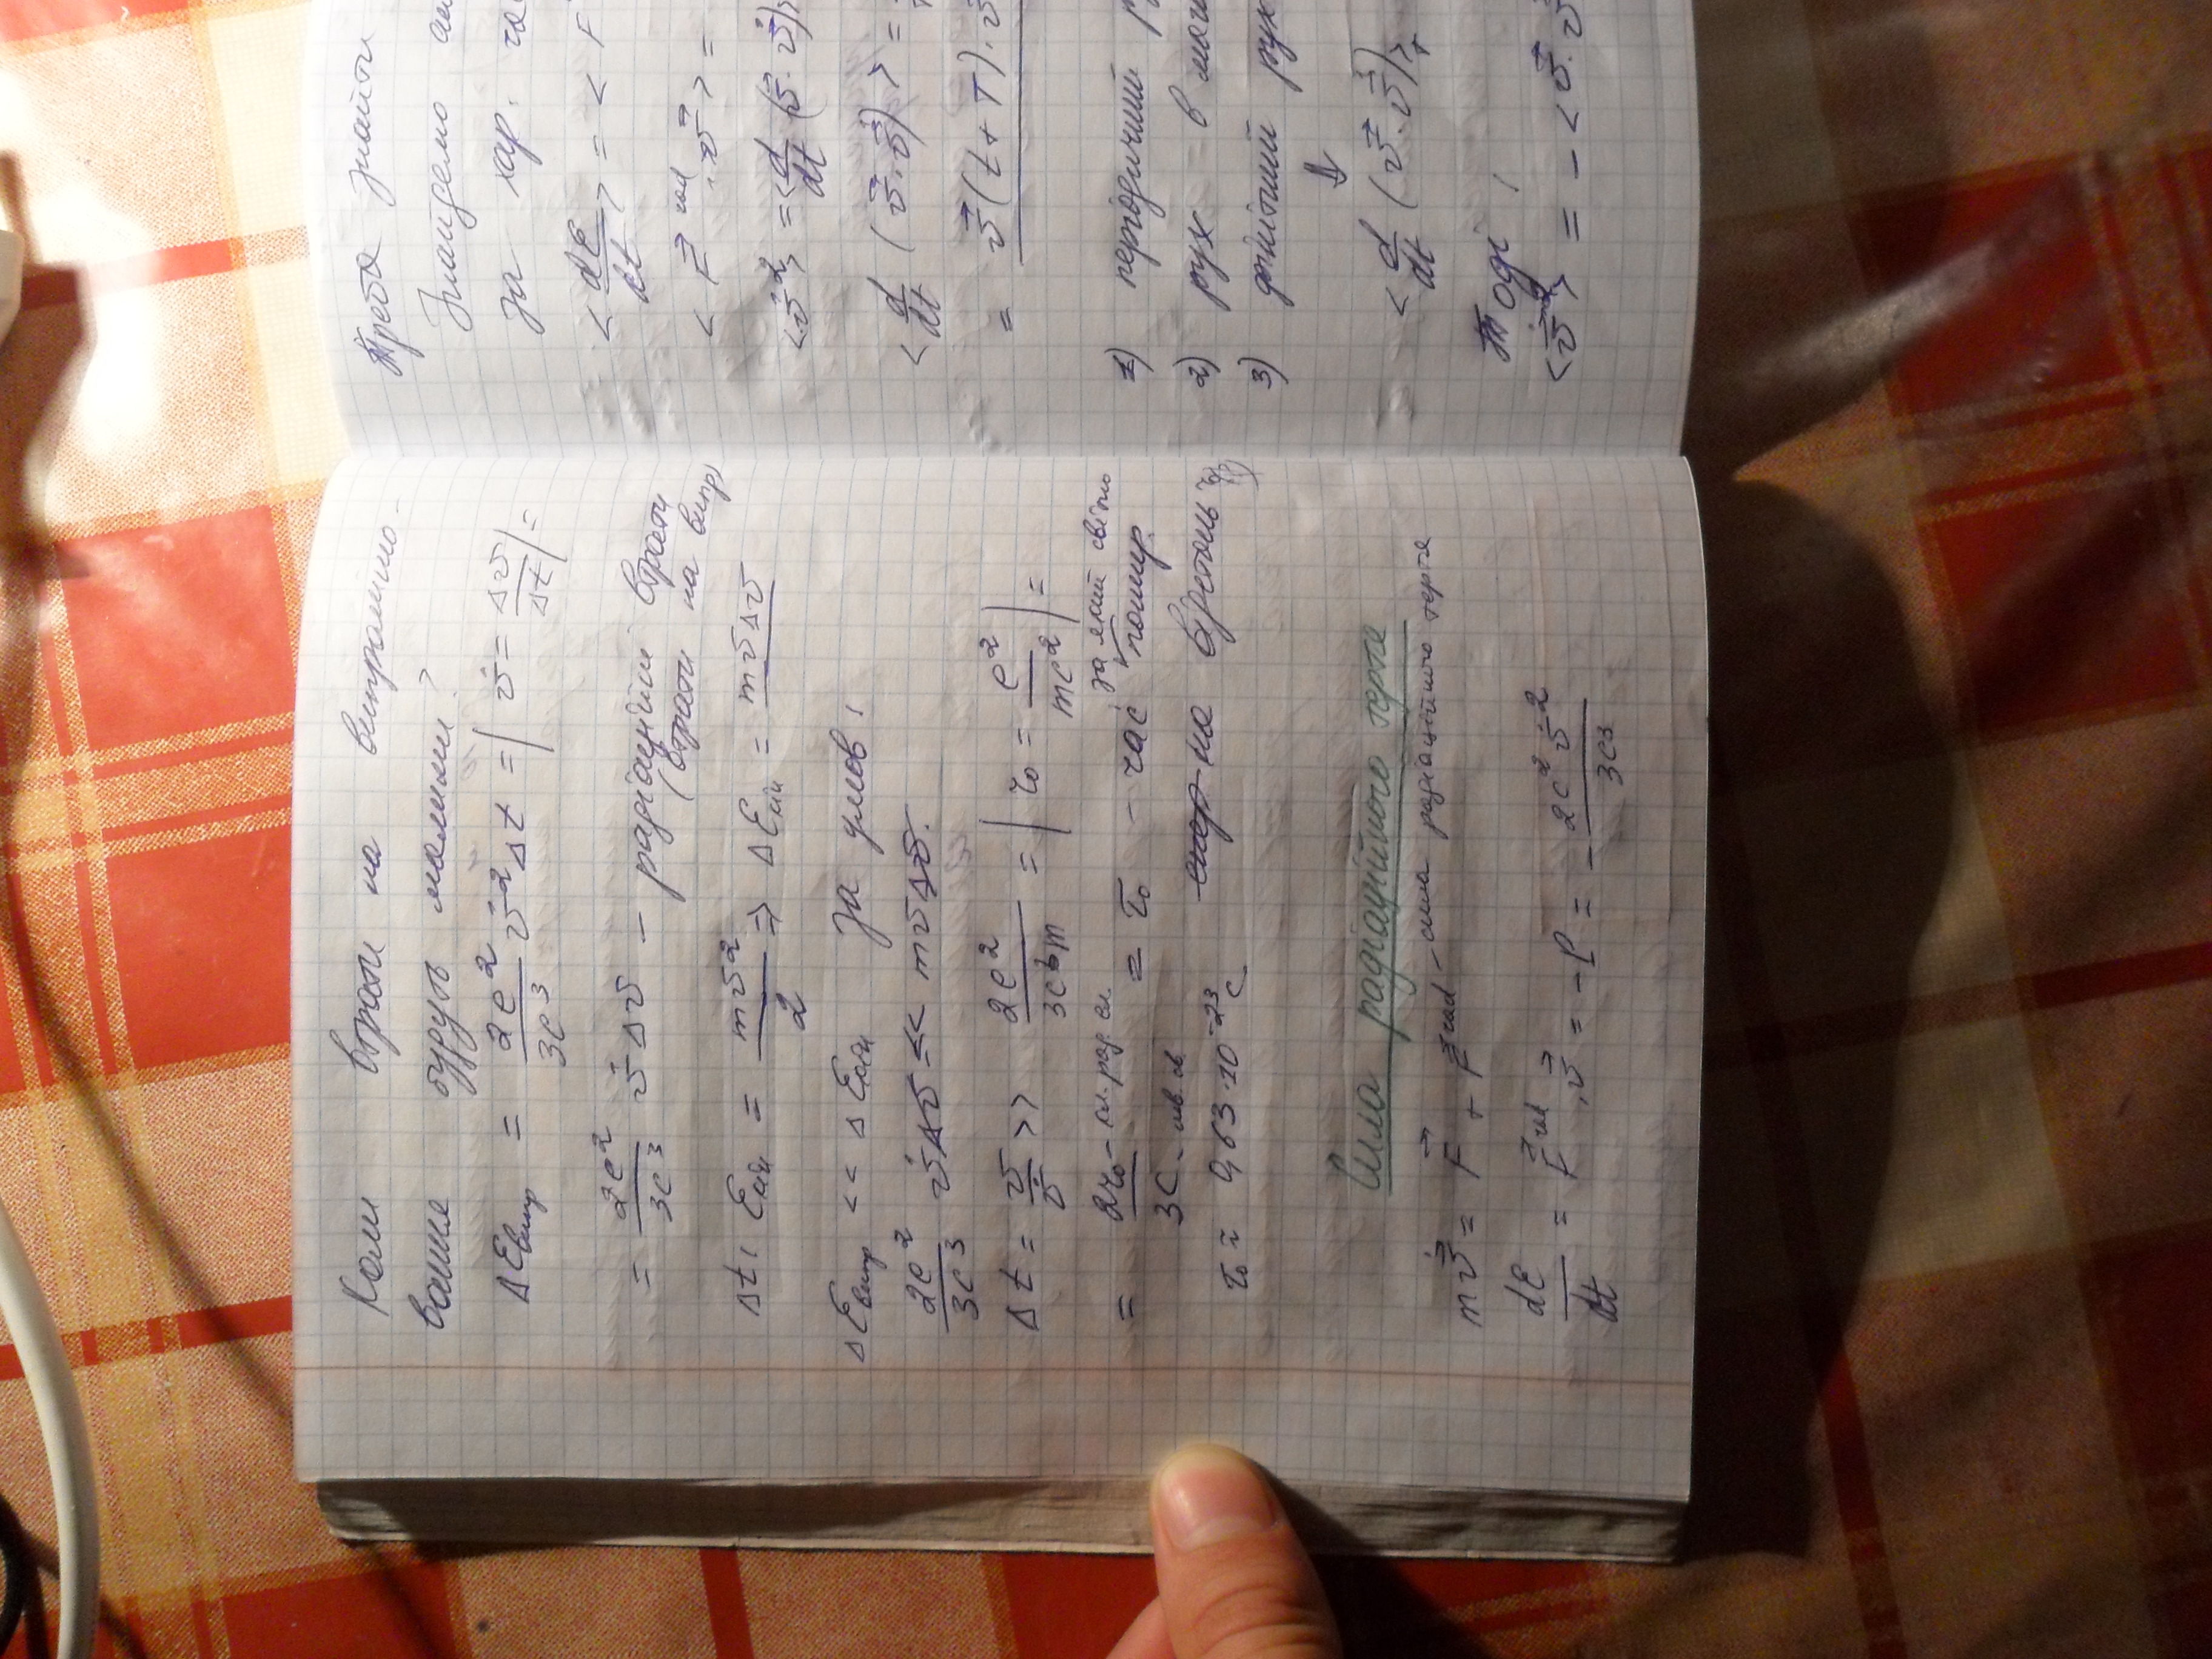 Коли втрати на випроміню-
вання будуть малими?
ΔEвипр = 2e²/3c³ v̇² Δt = | v̇ = Δv/Δt | =
= 2e²/3c³ v̇ Δv – радіаційні втрати
(втрати на випр)
Δt, Eкін = mv²/2 ⇒ ΔEкін = mvΔv
ΔEвипр << ΔEкін За умов,
2e²/3c³ v̇Δv << mvΔv.
Δt = v/v̇ >> 2e²/3c³m = | r₀ = e²/mc² | =
= 2r₀/3c = τ₀ – час за який світло
помир.
на
τ₀ ≈ 0,63·10⁻²³ c
Сила радіаційного тертя
mv̇ = F + F rad – сила радіаційного тертя
dE/dt = F rad · v = -P = - 2e² v̇²/3c³
Треба знайти
Знайдемо
За хар. час
<dE/dt> = < F
< F rad · v > =
<v̇²> = <d/dt (v · v̇)
<d/dt (v · v̇)> =
= v(t+T) · v
1) періодичний
2) рух в
3) фінітний рух
⇓
<d/dt (v · v̇)>
Тоді,
<v̇²> = - <v · v